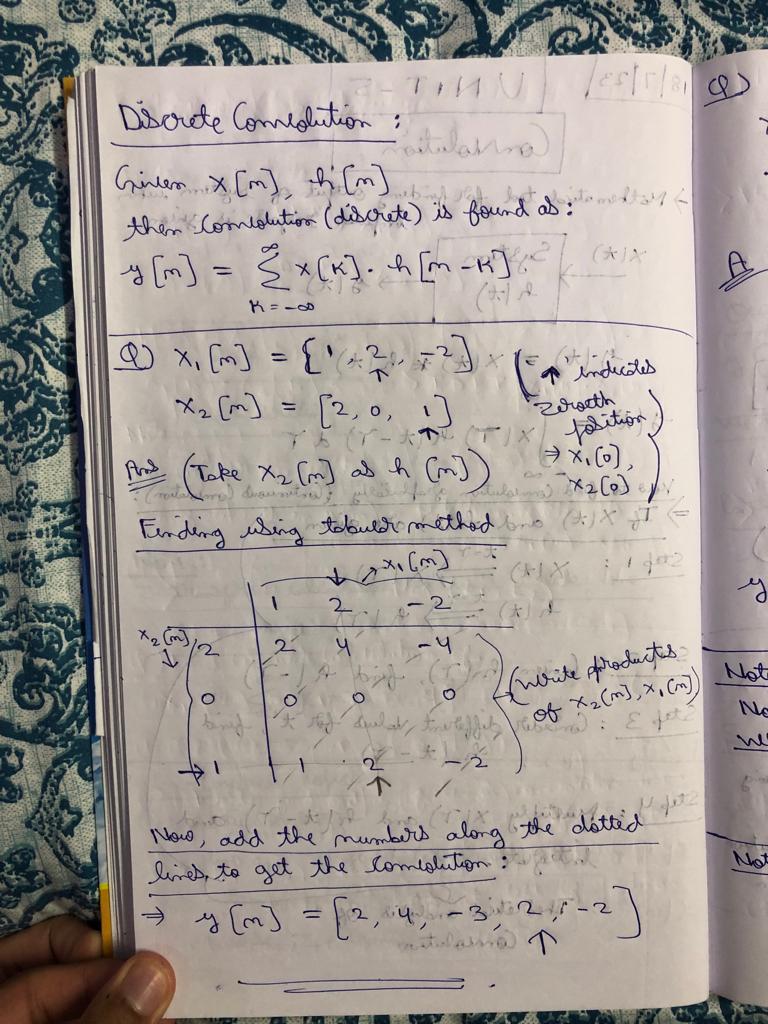 Discrete Convolution :
Given x[n], h[n]
then Convolution (discrete) is found as:
y[n] = ∞ Σ K=-∞ x[K]. h[n-K]
Q) x₁[n] = {1, 2, -2}
↑
x₂[n] = [2, 0, 1]
↑
(↑ indicates
zeroeth
position
⇒ x₁[0],
x₂[0])
Ans (Take x₂[n] as h[n])
Finding using tabular method
↓ → x₁[n]
1 2 -2
x₂[n]
↓
2 2 4 -4
0 0 0 0
→ 1 1 2 -2
↑
(Write products
of x₂[n], x₁[n])
Now, add the numbers along the dotted
lines, to get the convolution :
⇒ y[n] = [2, 4, -3, 2, -2]
↑
Q)
A
y
Not
No
we
Not